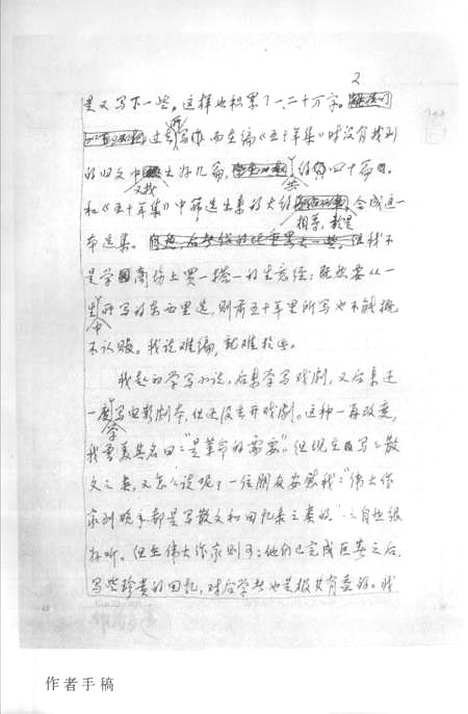 2
是又写下一些。这样也积累了一、二十万字。
过去所写作而在编《五十年集》时没有找到
的旧文中又找出好几篇，共约四十篇。
和《五十年集》中筛选出来的大约相等，就是合成这一
本选集。但我不
是学商场上买一搭一的生意经：既然要从一
生中所写的东西里选，则前五十年里所写也不能概
不认账。我说难编，就难于此。
我起初学写小说，后来学写戏剧，又后来还
一度学写电影剧本，但还没离开戏剧。这种一再改变，
我曾美其名曰：“是革命的需要”。但现在写写散
文之类，又怎么说呢？一位朋友安慰我：“伟大作
家到晚年都是写散文和回忆录之类的。”这自然很
好听。但在伟大作家则可：他们已完成巨著之后，
写些珍贵的回忆，对后学者也是极其有益的。我
作者手稿